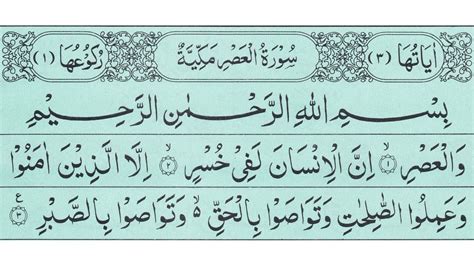 اٰيَاتُهَا (٣) سُوْرَةُ الْعَصْرِ مَكِّيَّةٌ رُكُوْعُهَا (١)
بِسْمِ اللّٰهِ الرَّحْمٰنِ الرَّحِيْمِ
وَالْعَصْرِ ۙ‏﴿۱﴾ اِنَّ الْاِنْسَانَ لَفِيْ خُسْرٍ ۙ‏﴿۲﴾ اِلَّا الَّذِيْنَ اٰمَنُوْا
وَعَمِلُوا الصّٰلِحٰتِ وَتَوَاصَوْا بِالْحَقِّ ۙ۬ وَتَوَاصَوْا بِالصَّبْرِ ﴿۳﴾ ع